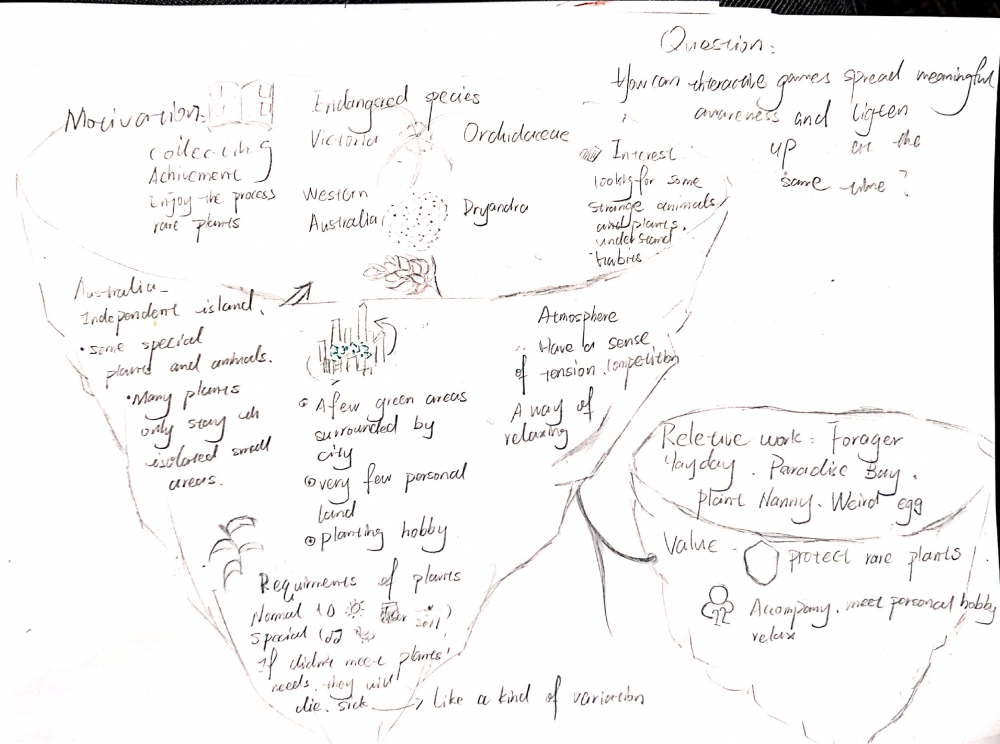 Question:
How can interactive games spread meaningful
awareness and ligten
up at the
same time?
Motivation:
Collecting
Achivement
Enjoy the process
rare plants
Endangered species
Victoria
Orchidaceae
Western
Australia
Dryandra
Interest
looking for some
strange animals
and plants.
understand
habies
Australia-
Independent island.
• some special
plants and animals.
• Many plants
only stay in
isolated small
areas.
A few green areas
surrounded by
city
very few personal
land
planting hobby
Atmosphere
Have a sense
of tension. competition
A way of
relaxing
Requirments of plants
Normal
soil)
Special
If didn't meet plants'
needs. they will
die. sick → Like a kind of variation
Reletive work: Forager
Hayday. Paradise Bay.
Plant Nanny. Weird egg
Value
protect rare plants
Accompany. meet personal hobby
relax